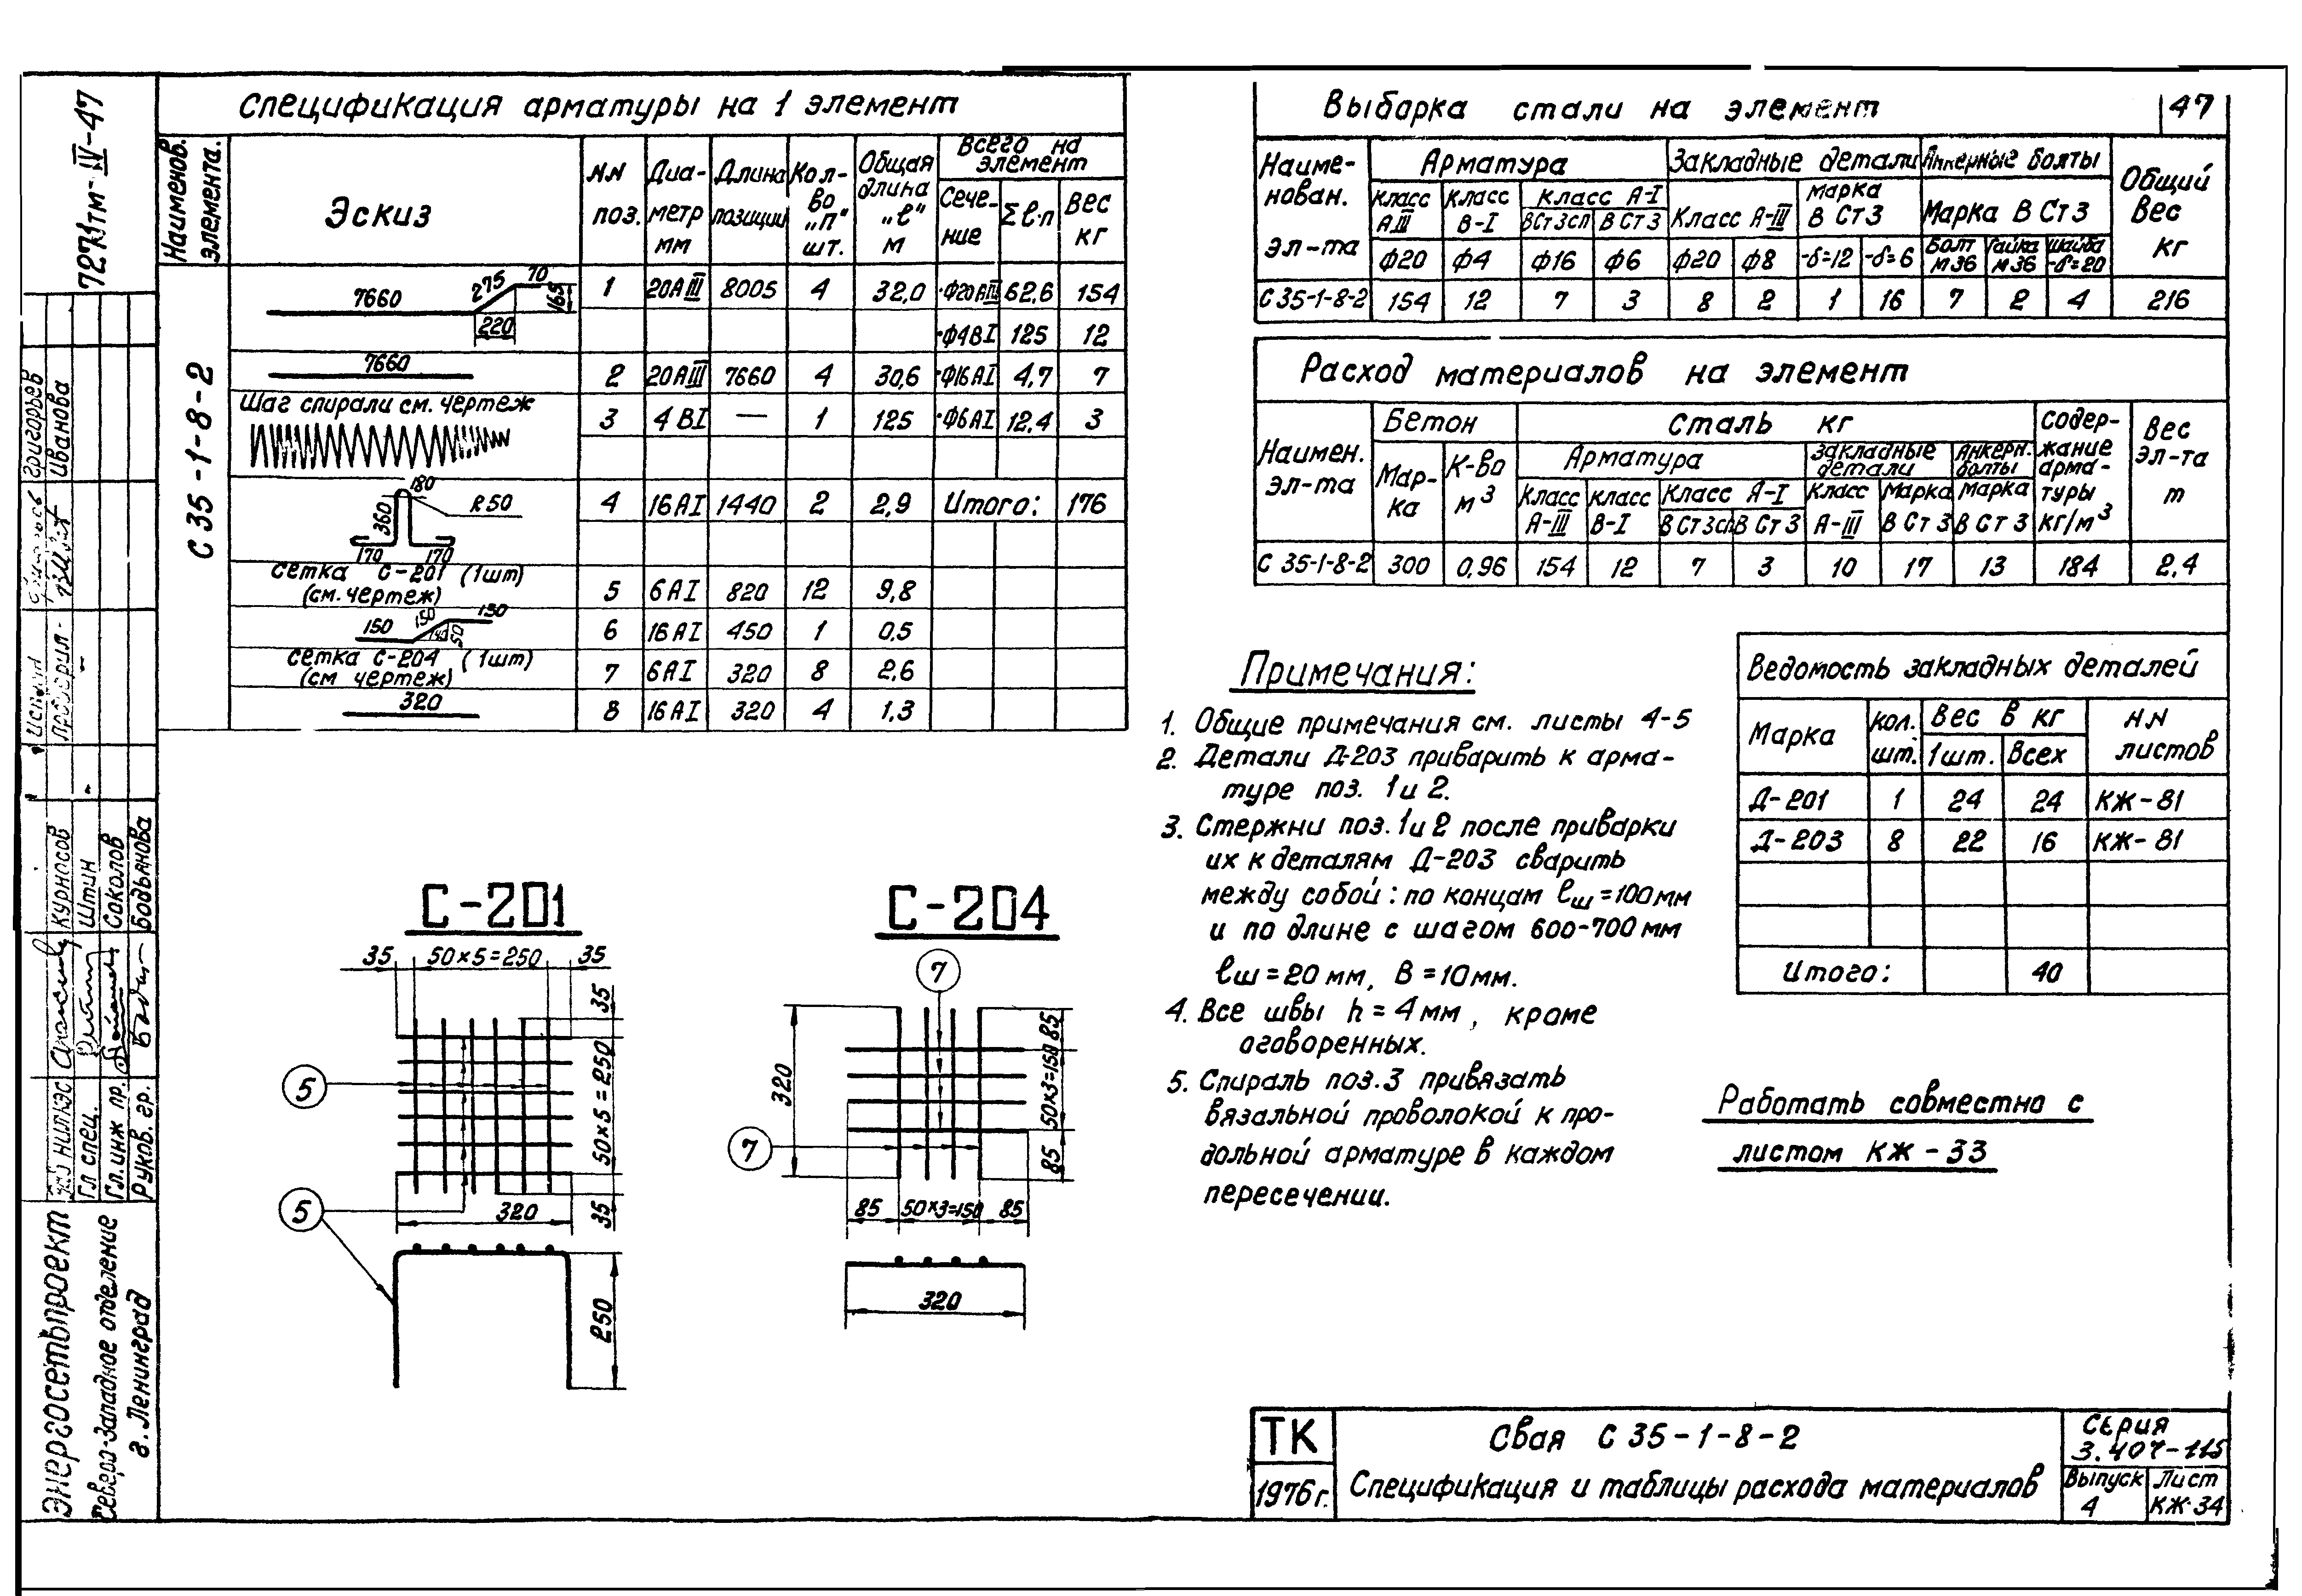 Спецификация арматуры на 1 элемент
Наименов. элемента.
Эскиз
NN поз.
Диаметр мм
Длина позиции
Кол-во "п" шт.
Общая длина "ℓ" м
Всего на элемент
Сечение
Σℓ·п
Вес кг
С 35-1-8-2
7660 275 70 165 220
1 20АIII 8005 4 32,0 ·Ф20АIII 62,6 154
·Ф4ВI 125 12
7660
2 20АIII 7660 4 30,6 ·Ф16АI 4,7 7
Шаг спирали см. чертеж
3 4ВI — 1 125 ·Ф6АI 12,4 3
180 R50 360 170 170
4 16АI 1440 2 2,9 Итого: 176
Сетка С-201 (1шт)
(см. чертеж)
5 6АI 820 12 9,8
150 150 140 50 150
6 16АI 450 1 0,5
Сетка С-204 (1шт)
(см чертеж)
7 6АI 320 8 2,6
320
8 16АI 320 4 1,3
Выборка стали на элемент
47
Наименован. эл-та
Арматура
Закладные детали
Анкерные болты
Общий вес кг
Класс АIII
Класс В-I
Класс А-I
ВСт3сп
ВСт3
Класс А-III
Марка В Ст3
Марка В Ст3
Ф20 Ф4 Ф16 Ф6 Ф20 Ф8 -δ=12 -δ=6
Болт М36
Гайка М36
Шайба -δ=20
С 35-1-8-2 154 12 7 3 8 2 1 16 7 2 4 216
Расход материалов на элемент
Наимен. эл-та
Бетон
Сталь кг
Содержание арматуры кг/м³
Вес эл-та т
Марка
К-во м³
Арматура
Закладные детали
Анкерн. болты
Класс А-III
Класс В-I
Класс А-I
В Ст3сп
В Ст3
Класс А-III
Марка В Ст3
Марка В Ст3
С 35-1-8-2 300 0,96 154 12 7 3 10 17 13 184 2,4
Примечания:
1. Общие примечания см. листы 4-5
2. Детали Д-203 приварить к арма-
туре поз. 1 и 2.
3. Стержни поз. 1 и 2 после приварки
их к деталям Д-203 сварить
между собой: по концам ℓш=100мм
и по длине с шагом 600-700мм
ℓш=20мм, В=10мм.
4. Все швы h=4мм, кроме
оговоренных.
5. Спираль поз. 3 привязать
вязальной проволокой к про-
дольной арматуре в каждом
пересечении.
Ведомость закладных деталей
Марка
Кол. шт.
Вес в кг
1шт. Всех
NN листов
Д-201 1 24 24 КЖ-81
Д-203 8 22 16 КЖ-81
Итого: 40
Работать совместно с
листом КЖ-33
С-201
35 50×5=250 35
35
50×5=250
35
5
5
320
250
С-204
7
7
320
85
50×3=150
85
85 50×3=150 85
320
ТК
1976г.
Свая С 35-1-8-2
Спецификация и таблицы расхода материалов
Серия
3.407-115
Выпуск 4
Лист КЖ-34
7271тм-IV-47
Григорьев
Иванова
Проверил
Курносов
Штин
Соколов
Бодьянова
Гл спец.
Гл. инж пр.
Руков. гр.
Энергосетьпроект
Северо-Западное отделение
г. Ленинград